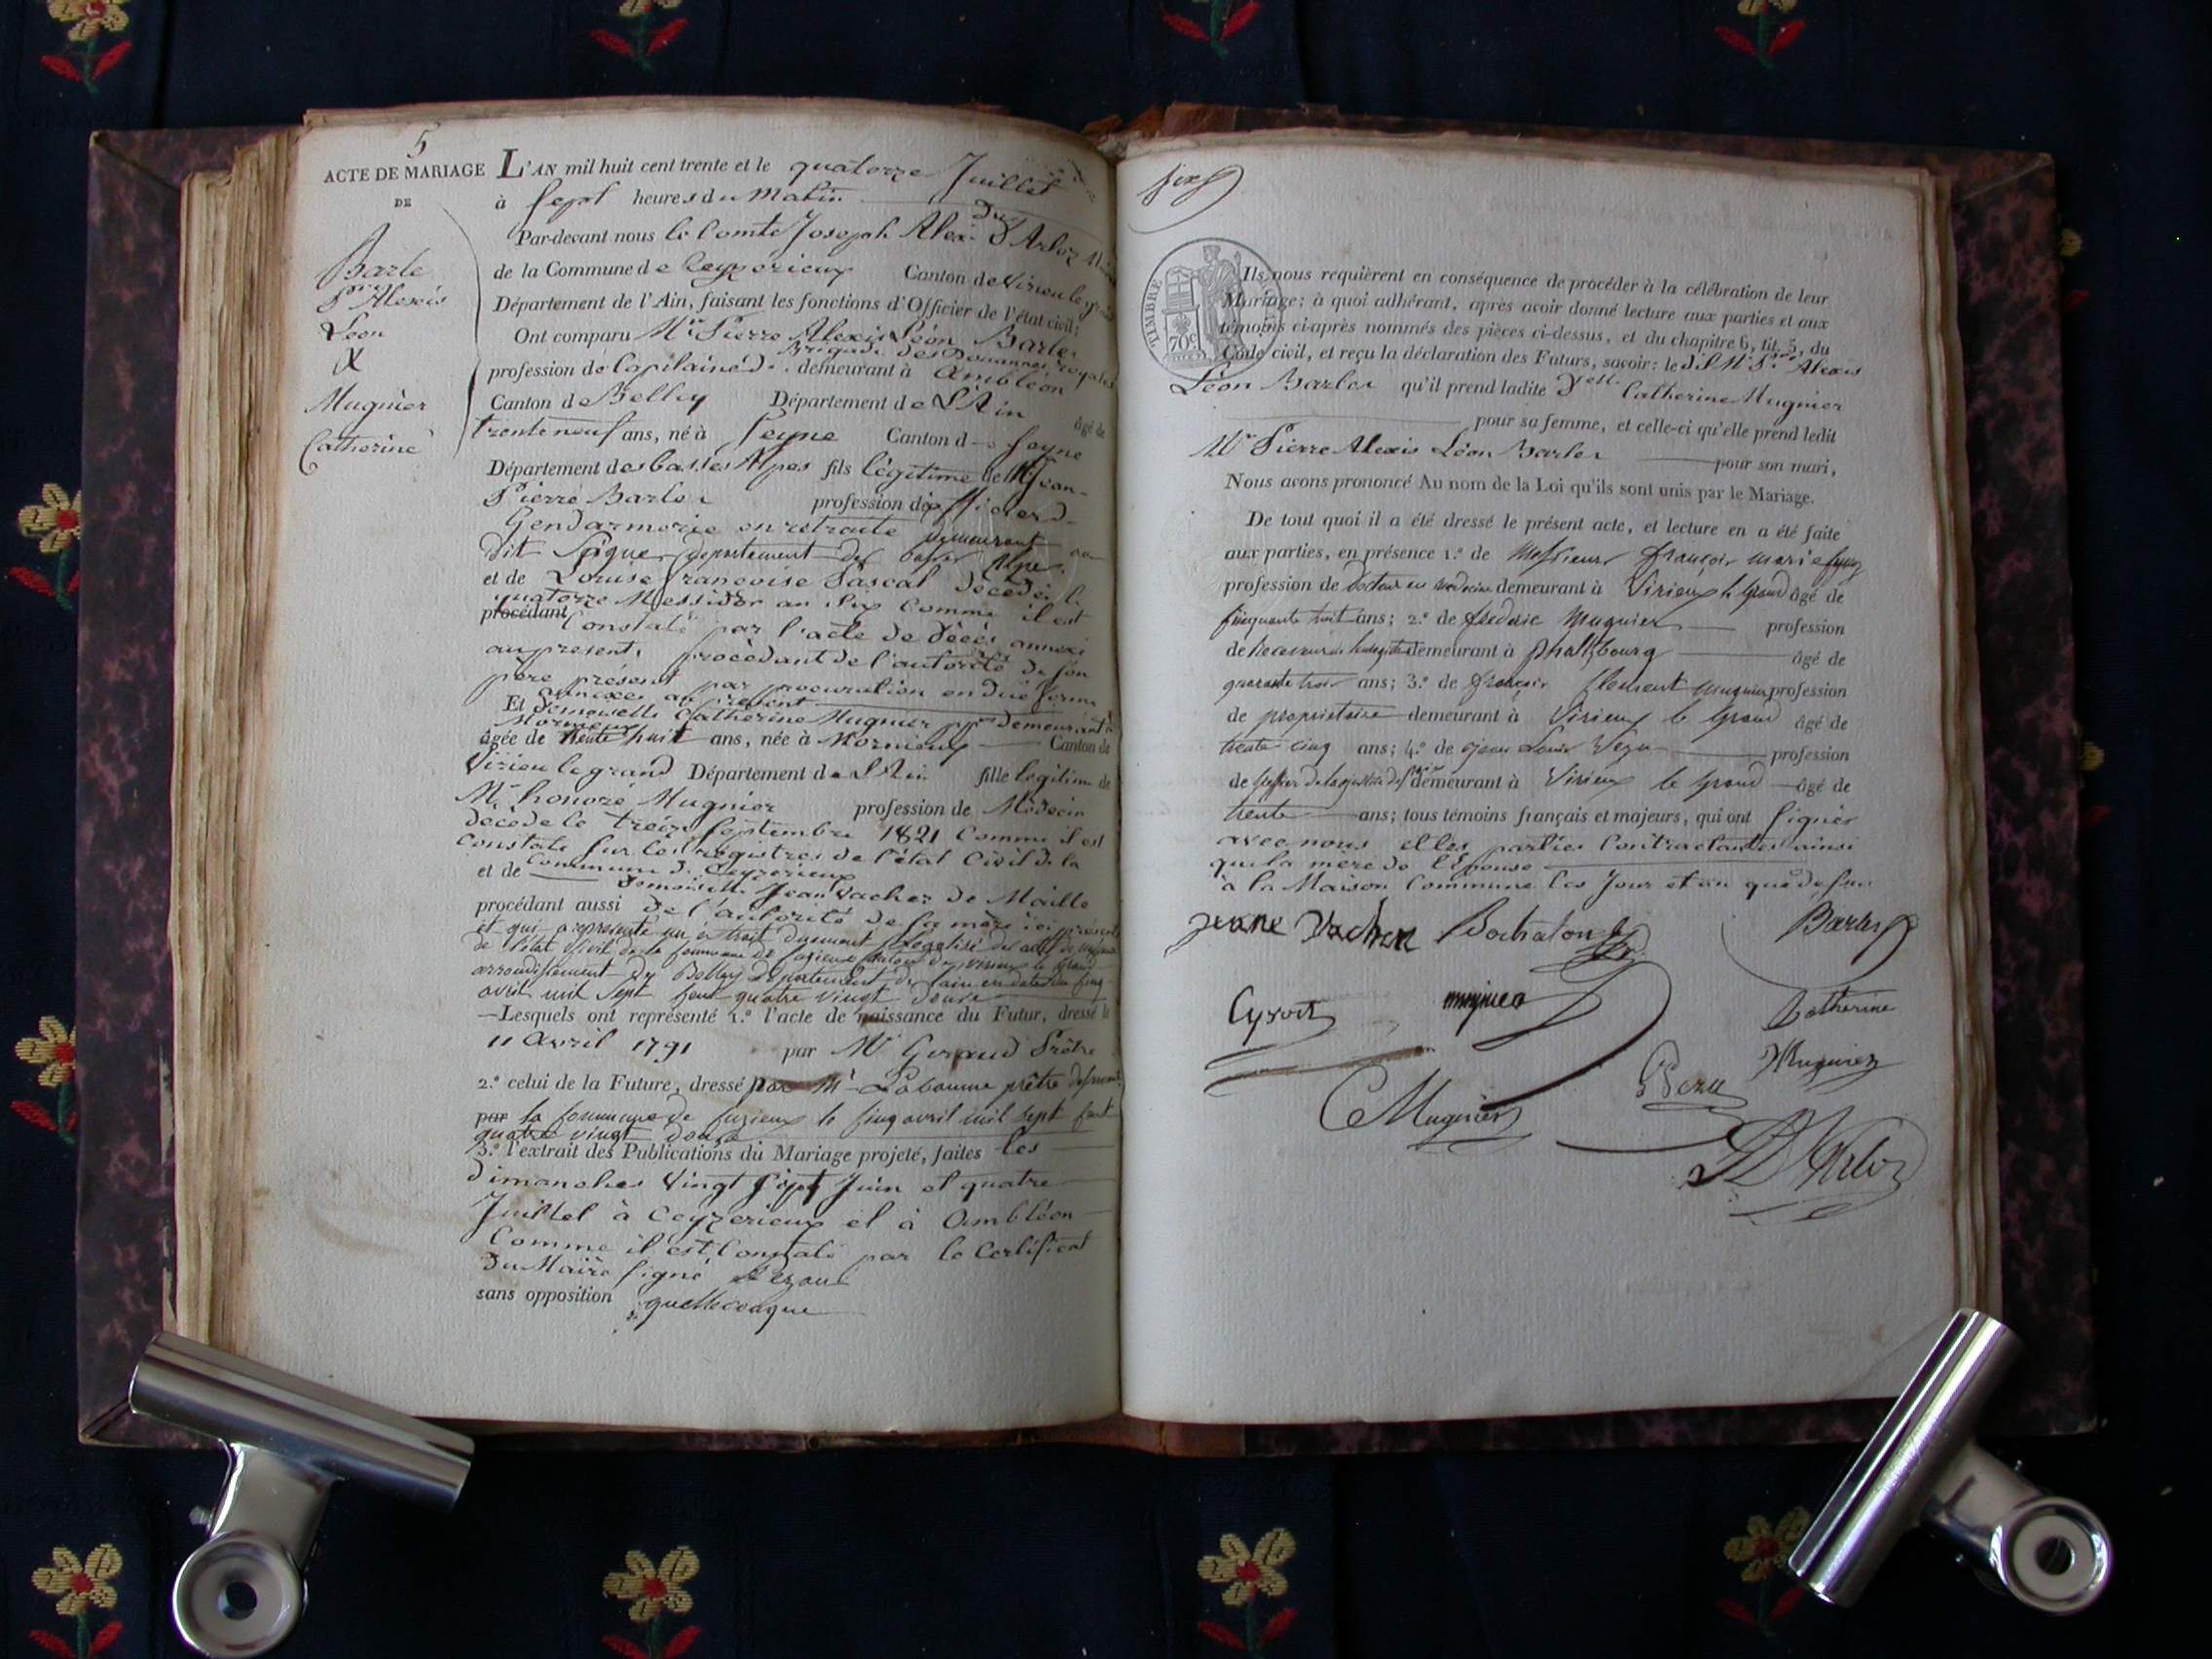 5
ACTE DE MARIAGE
DE
Barle
Pre Alexis
Léon
&
Mugnier
Catherine
L'AN mil huit cent trente et le quatorze Juillet
à sept heures du Matin
Par-devant nous le Comte Joseph Alexis D'Arloz
de la Commune de Ceyzerieux Canton de Virieu le grand
Département de l'Ain, faisant les fonctions d'Officier de l'état civil;
Ont comparu Mr Pierre Alexis Léon Barler
Brigade des Douanes royales
profession de Capitaine de demeurant à Ambléon
Canton de Belley Département de L'Ain âgé de
trente neuf ans, né à Seyne Canton de Seyne
Département des basses Alpes fils légitime de Mr Jean-
Pierre Barler profession d'officier de
Gendarmerie en retraite demeurant au
dit departement des basses Alpes
et de Louise françoise Pascal décédée le
quatorze Messidor an Six comme il est
procédant constaté par l'acte de décès annexé
au present, procèdant de l'autorité de son
père présent par procuration en due forme
annexée au present
Et demoiselle Catherine Mugnier demeurant à
Mornieux
âgée de trente huit ans, née à Mornieux Canton de
Virieu le grand Département de L'Ain fille légitime de
Mr honoré Mugnier profession de Médecin
décédé le treize Septembre 1821 comme il est
constaté sur les registres de l'état civil de la
et de Commune de Ceyzerieux
demoiselle Jean Vacher de Maille
procédant aussi de l'autorité de sa mère ici présente
et qui a représenté un extrait dument légalisé des actes de
de l'état civil de la commune de canton de virieux le grand
arrondissement de Belley département de l'ain en date du cinq
avril mil sept cent quatre vingt douze
—Lesquels ont représenté 1.° l'acte de naissance du Futur, dressé le
11 avril 1791 par Mr Geraud Prêtre
2.° celui de la Future, dressé par Mr Labaume prêtre
par la commune de le cinq avril mil sept cent
quatre vingt douze
3.° l'extrait des Publications du Mariage projeté, faites les
dimanches vingt sept Juin et quatre
Juillet à Ceyzerieux et à Ambléon
Comme il est constaté par le Certificat
du Maire signé
sans opposition quelleconque
six
TIMBRE
70c
Ils nous requièrent en conséquence de procéder à la célébration de leur
Mariage; à quoi adhérant, après avoir donné lecture aux parties et aux
témoins ci-après nommés des pièces ci-dessus, et du chapitre 6, tit. 5, du
Code civil, et reçu la déclaration des Futurs, savoir: le dit Mr Pre Alexis
Léon Barler qu'il prend ladite Delle Catherine Mugnier
pour sa femme, et celle-ci qu'elle prend ledit
Mr Pierre Alexis Léon Barler pour son mari,
Nous avons prononcé Au nom de la Loi qu'ils sont unis par le Mariage.
De tout quoi il a été dressé le présent acte, et lecture en a été faite
aux parties, en présence 1.° de Messieur françois marie
profession de docteur en médecine demeurant à Virieux le Grand âgé de
cinquante huit ans; 2.° de frederic Mugnier profession
de Receveur de demeurant à phalsbourg âgé de
quarante trois ans; 3.° de françois Clement mugnier profession
de propriétaire demeurant à Virieux le Grand âgé de
trente cinq ans; 4.° de jean Louis Vezu profession
de greffier de la justice de paix demeurant à Virieux le Grand âgé de
trente ans; tous témoins français et majeurs, qui ont signés
avec nous et les parties Contractantes ainsi
que la mere de l'Epouse
à la Maison Commune les Jour et an que dessus
jeane Vacher Bochaton Barler
Cyvoct mugnier Catherine
Mugnier
C Mugnier Vezu
D'Arloz